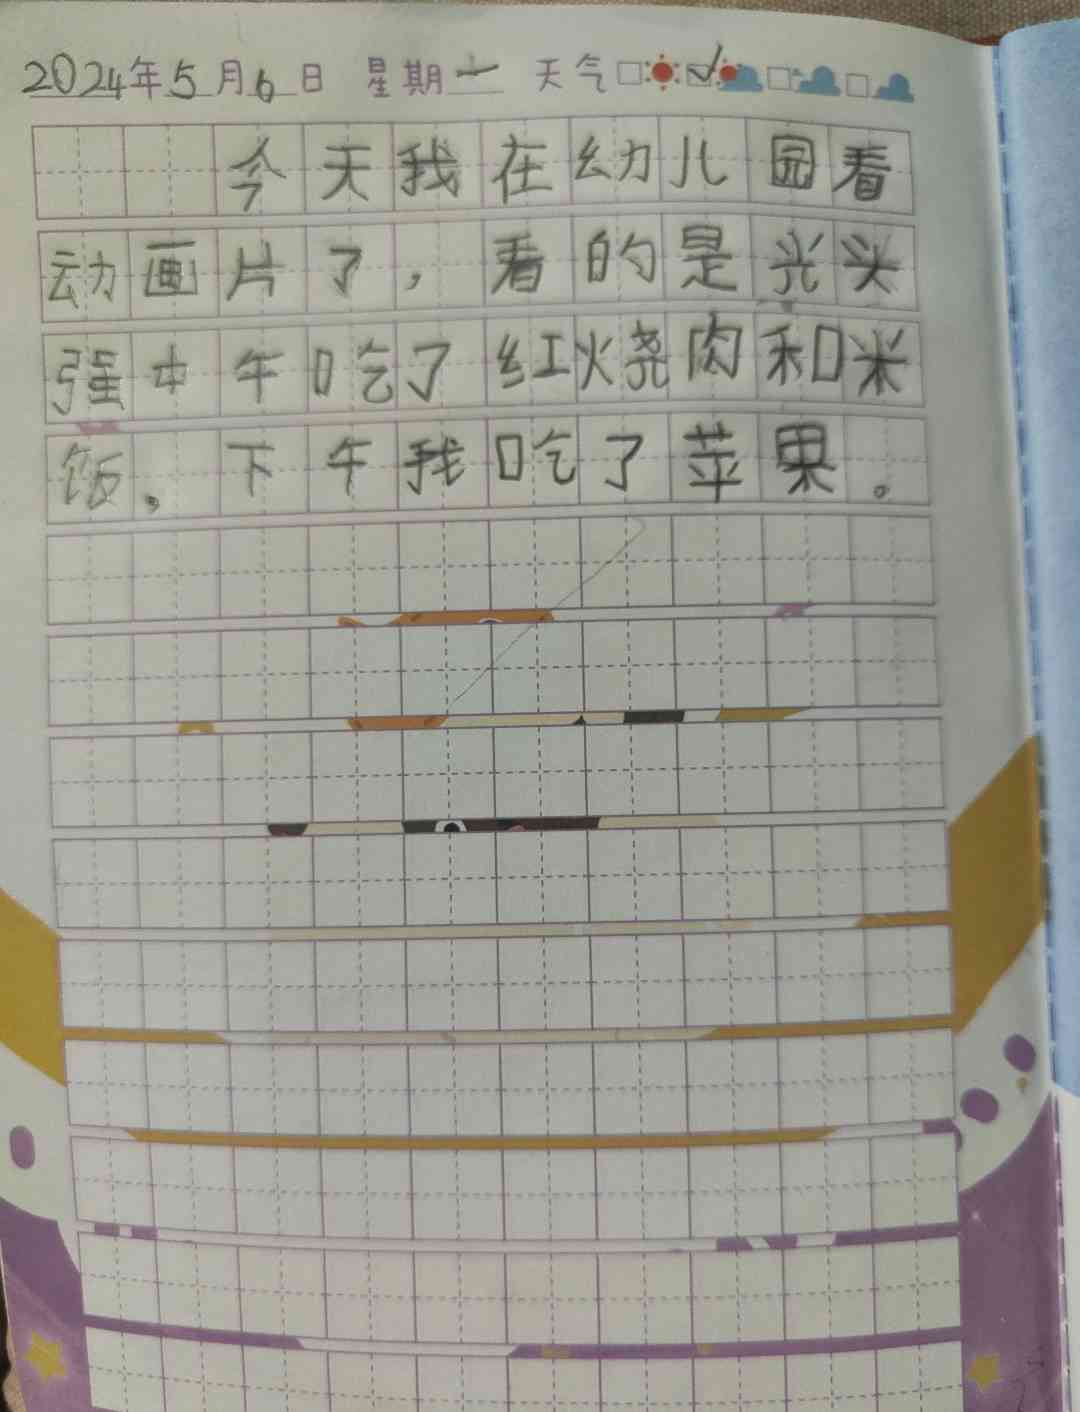 2024年5月6日 星期一 天气
今天我在幼儿园看
动画片了，看的是光头
强中午吃了红火烧肉和米
饭。下午我吃了苹果。